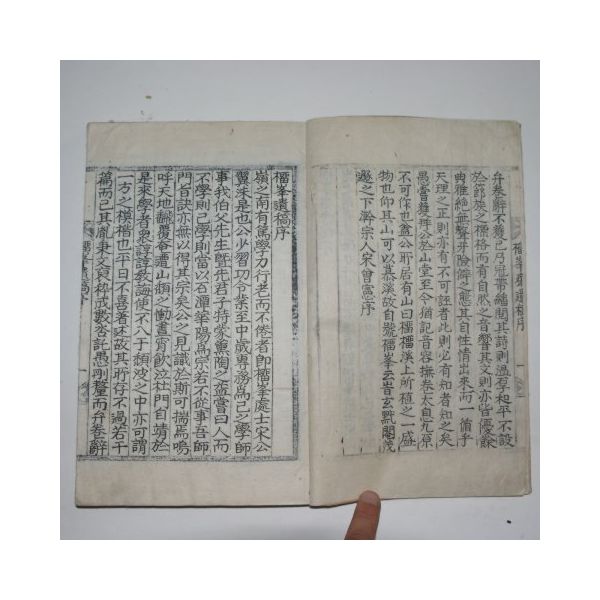 橊峯遺稿序
嶺之南有篤學力行老而不倦者即橊峯處士宋公
翼洙是也公少習功令業至中歲專務爲己之學師
事我伯父先生曁先君子持蒙薰陶之盛嘗曰人而
不學則已學則當以石潭華陽爲宗若不從事吾師
門旨訣亦無以得其宗矣公之見識於斯可揣焉嗚
呼天地飜覆谷遭山頹之慟晝宵飮泣杜門自靖於
是來學者衆諄諄敎誨使不入于頹波之中亦可謂
一方之模楷也平日不喜著述故其所存不過若干
篇而已其胤秉文裒稡成數卷託愚刪釐而弁卷辭
辭不獲已乃冠帶繙閱其詩則溫厚和平不設
於節族之標格而有自然之音響其文則亦皆優餘
典雅絶無聱牙險僻之態其自性情出來而一循乎
天理之正則亦有不可誣者此則必有知者知之矣
愚嘗雙拜公於山堂至今猶記音容撫卷太息九原
不可作也盖公所居有山曰橊橊溪上所植之一盛
物也仰其山可以慕溪故自號橊峯云旹玄黓閹茂
之下澣宗人宋曾憲序
橊峯遺稿序